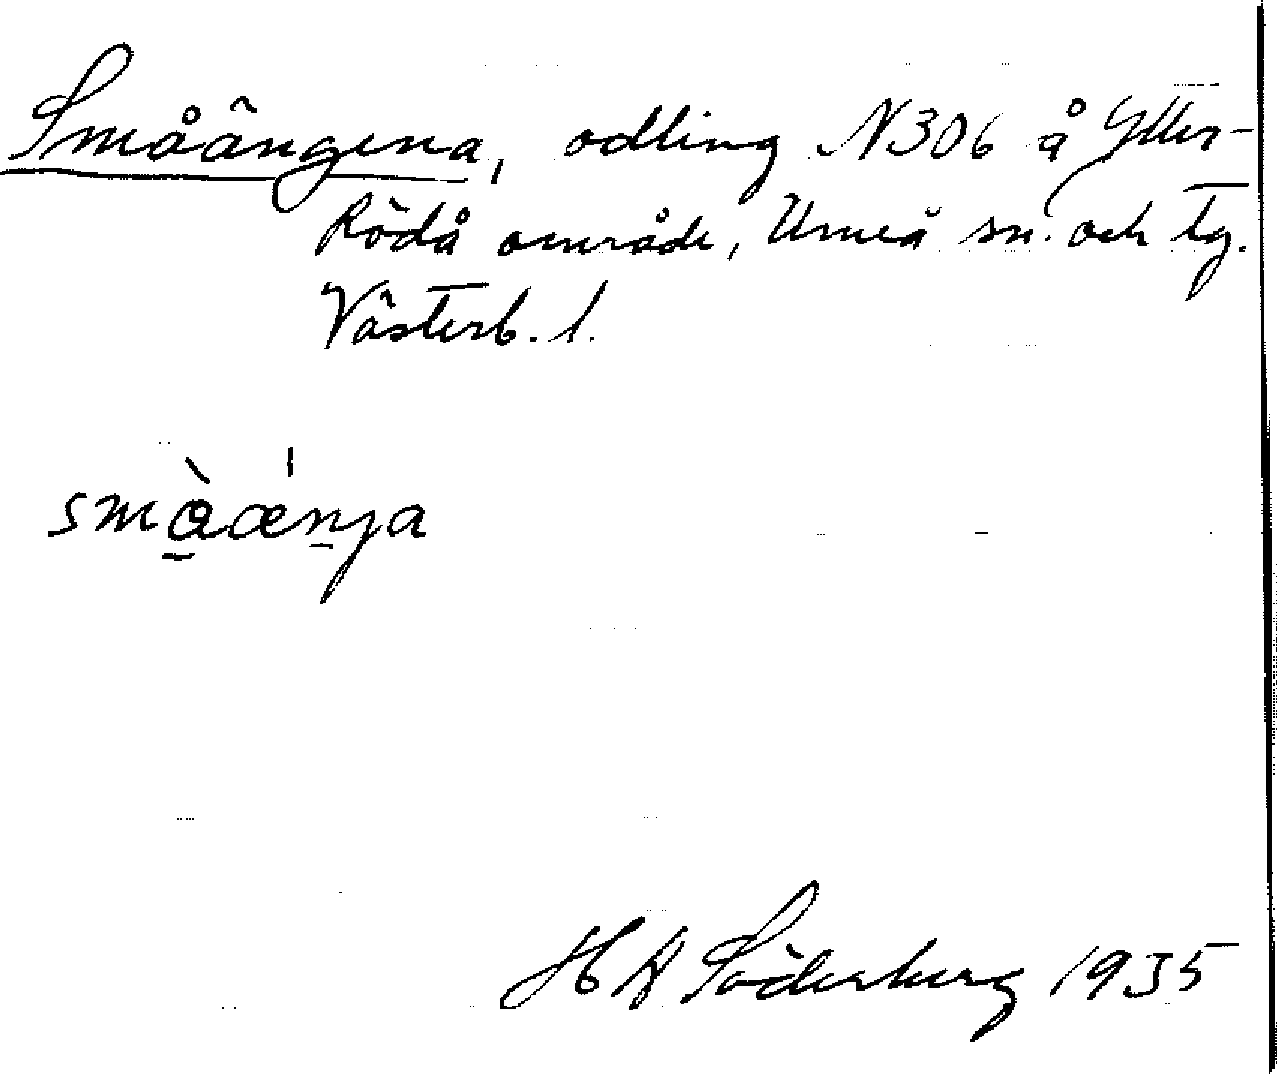 Småängena, odling N306 å Ytter-
Rödå område, Umeå sn. och tg.
Västerb. l.
små̀æ̍nja
H A Söderberg 1935